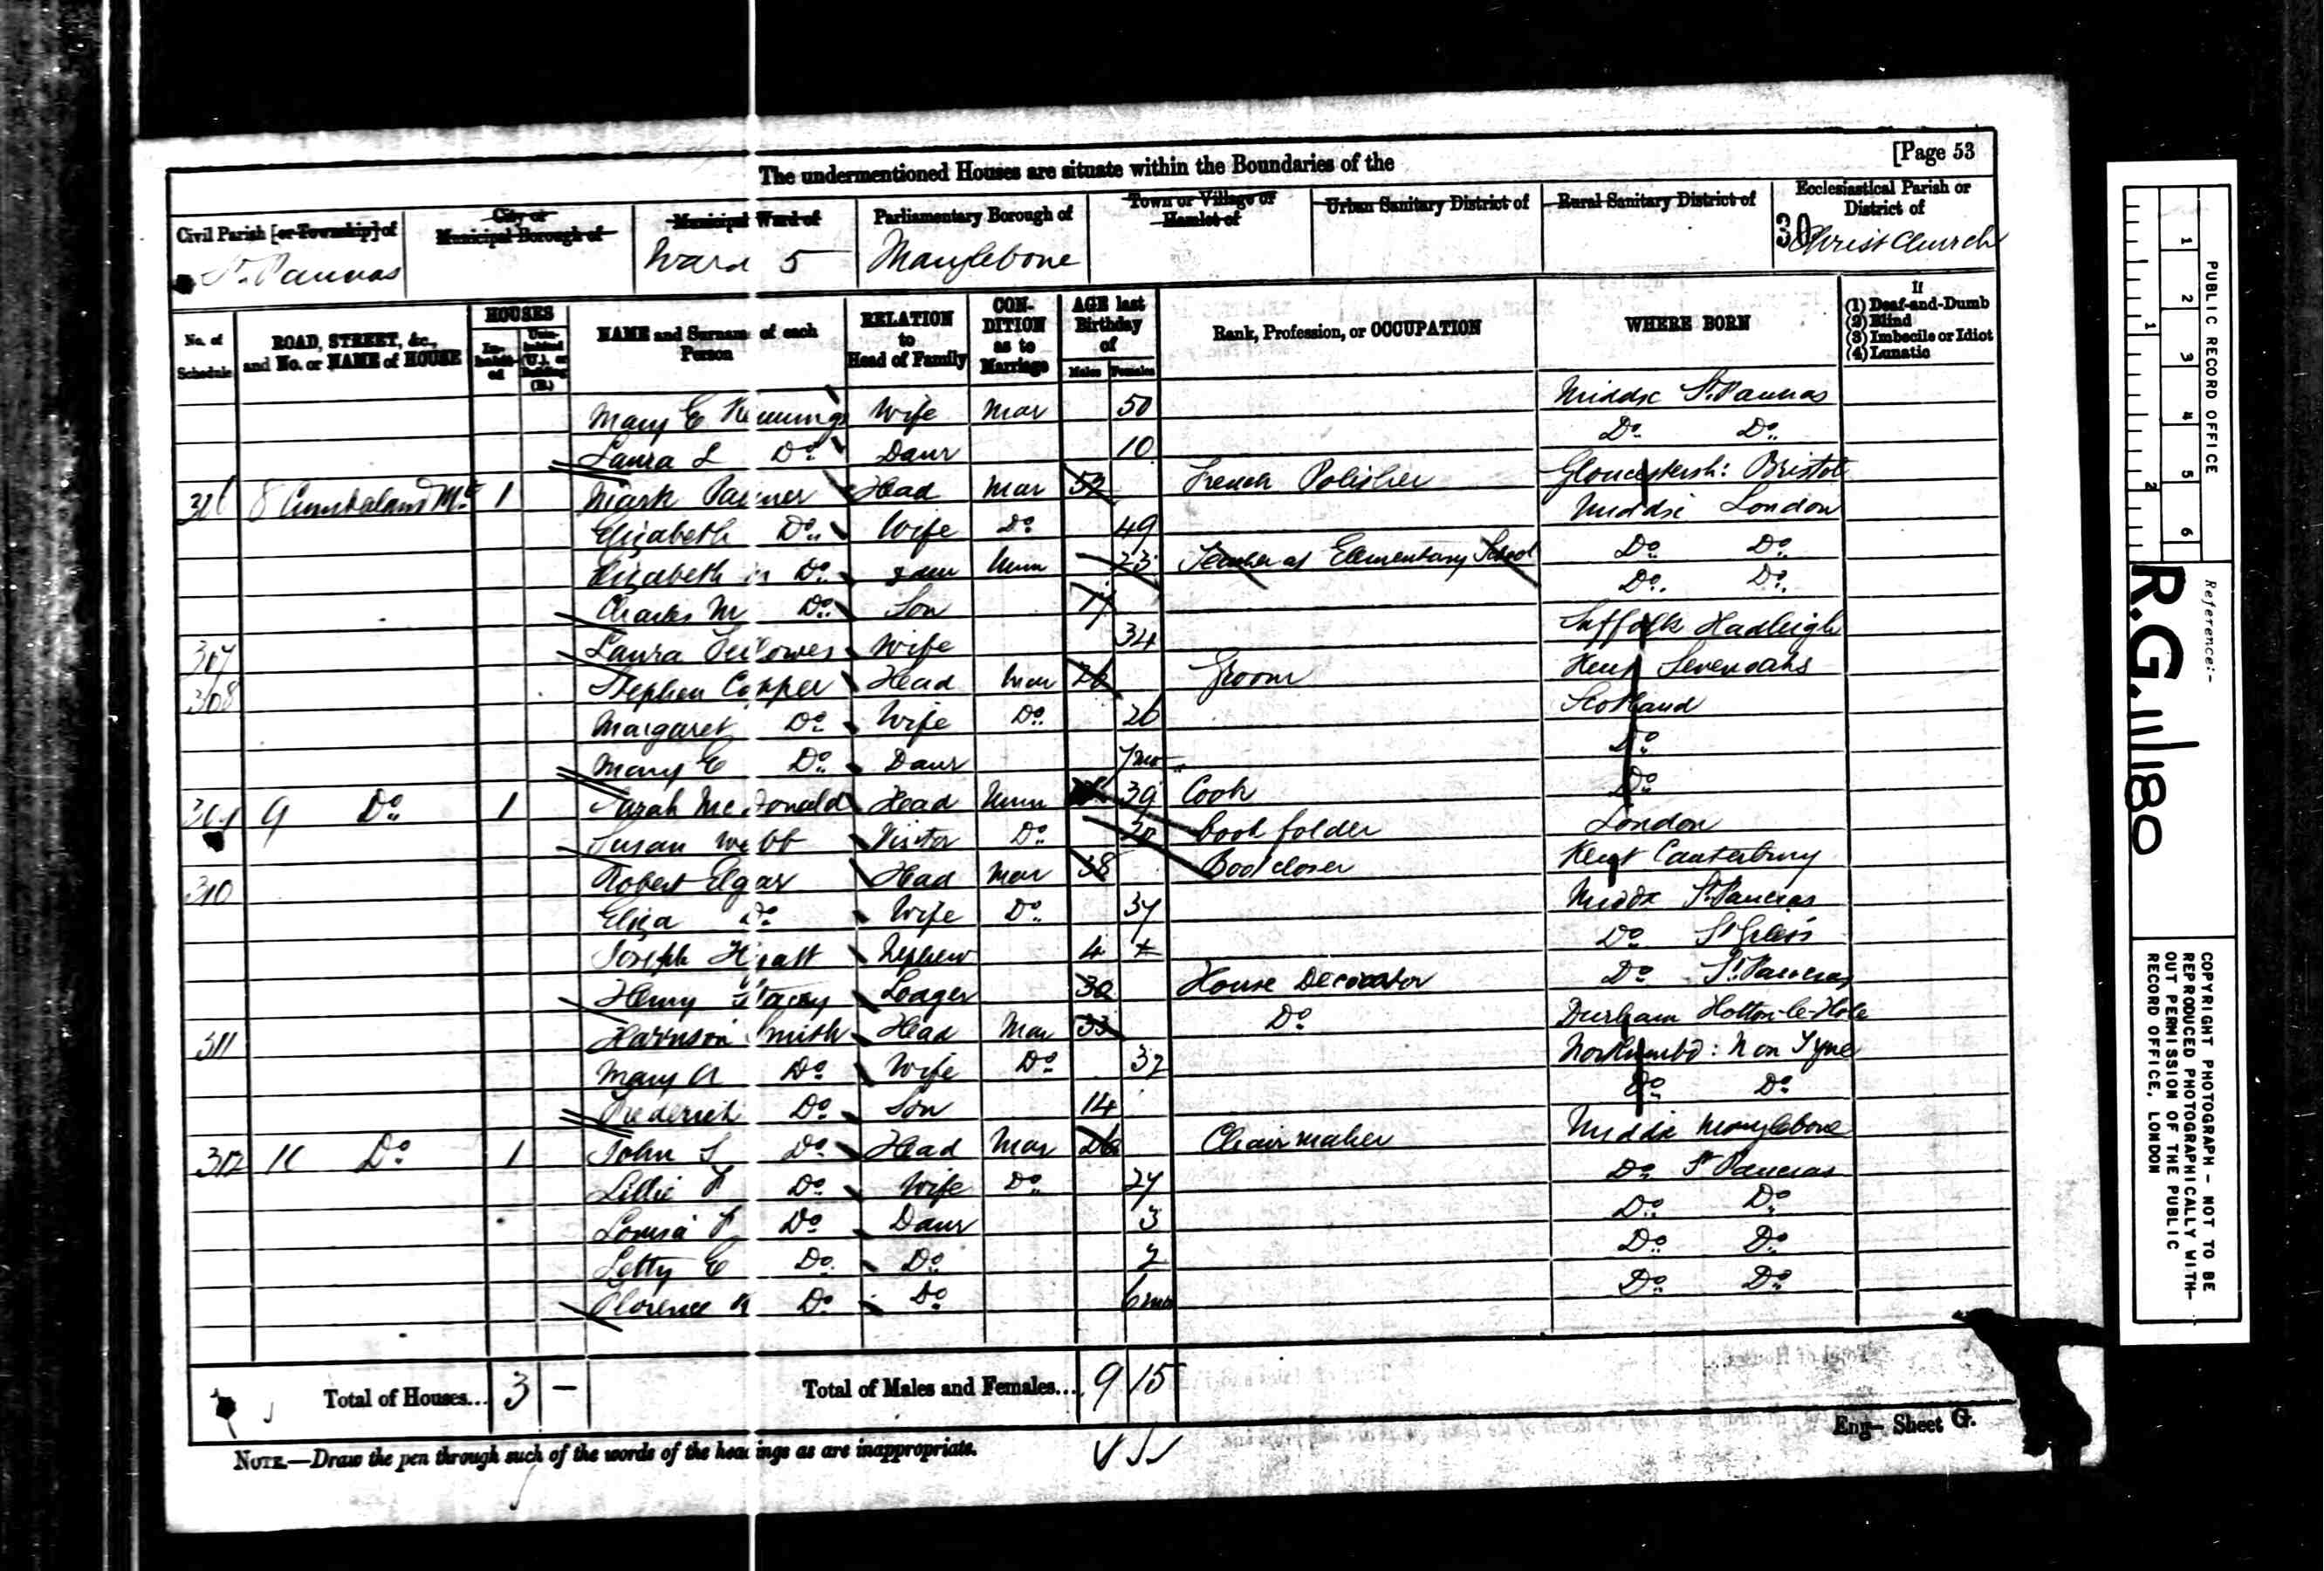 [Page 53
The undermentioned Houses are situate within the Boundaries of the
Civil Parish [or Township] of
St. Pancras
City or Municipal Borough of
Municipal Ward of
Ward 5
Parliamentary Borough of
Marylebone
Town or Village or Hamlet of
Urban Sanitary District of
Rural Sanitary District of
Ecclesiastical Parish or District of
30 Christ Church
No. of Schedule
ROAD, STREET, &c., and No. or NAME of HOUSE
HOUSES
In-habit-ed
Unin-habited (U.), or Building (B.)
NAME and Surname of each Person
RELATION to Head of Family
CON-DITION as to Marriage
AGE last Birthday of
Males Females
Rank, Profession, or OCCUPATION
WHERE BORN
If
(1) Deaf-and-Dumb
(2) Blind
(3) Imbecile or Idiot
(4) Lunatic
Mary E Wife Mar 50 Middx St. Pancras
Laura L Do. Daur 10 Do. Do.
8 Cumberland 1 Mark Head Mar French Polisher Gloucestersh: Bristol
Elizabeth Do. Wife Do. 49 Middx London
Elizabeth Do. Unm 23 Teacher at Elementary School Do. Do.
Charles M Do. Son 17 Do. Do.
307 Laura Wife 34 Suffolk Hadleigh
308 Stephen Copper Head Mar 26 Groom Kent Sevenoaks
Margaret Do. Wife Do. 26 Scotland
Mary E Do. Daur 7 mo Do.
9 Do. 1 Sarah McDonald Head Unm 39 Cook Do.
Susan Webb Visitor Do. Book folder London
310 Robert Elgar Head Mar 38 Boot closer Kent Canterbury
Eliza Do. Wife Do. 37 Middx St. Pancras
Joseph Nephew 4 Do. St Giles
Henry Stacey Lodger 30 House Decorator Do. St. Pancras
311 Harrison Smith Head Mar 33 Do. Durham Hetton-le-Hole
Mary A Do. Wife Do. 32 Northumbd: N on Tyne
Frederick Do. Son 14 Do. Do.
312 Do. 1 John S Do. Head Mar 26 Chair maker Middx Marylebone
Lillie F Do. Wife Do. 27 Do. St Pancras
Louisa F Do. Daur 3 Do. Do.
Letty E Do. Do. 2 Do. Do.
Florence Do. Do. 6 mo Do. Do.
Total of Houses... 3 —
Total of Males and Females... 9 15
Eng— Sheet G.
NOTE.—Draw the pen through such of the words of the headings as are inappropriate.
PUBLIC RECORD OFFICE
1 2 3 4 5 6
1 2
Reference:-
R.G. 11/180
COPYRIGHT PHOTOGRAPH - NOT TO BE
REPRODUCED PHOTOGRAPHICALLY WITH-
OUT PERMISSION OF THE PUBLIC
RECORD OFFICE, LONDON